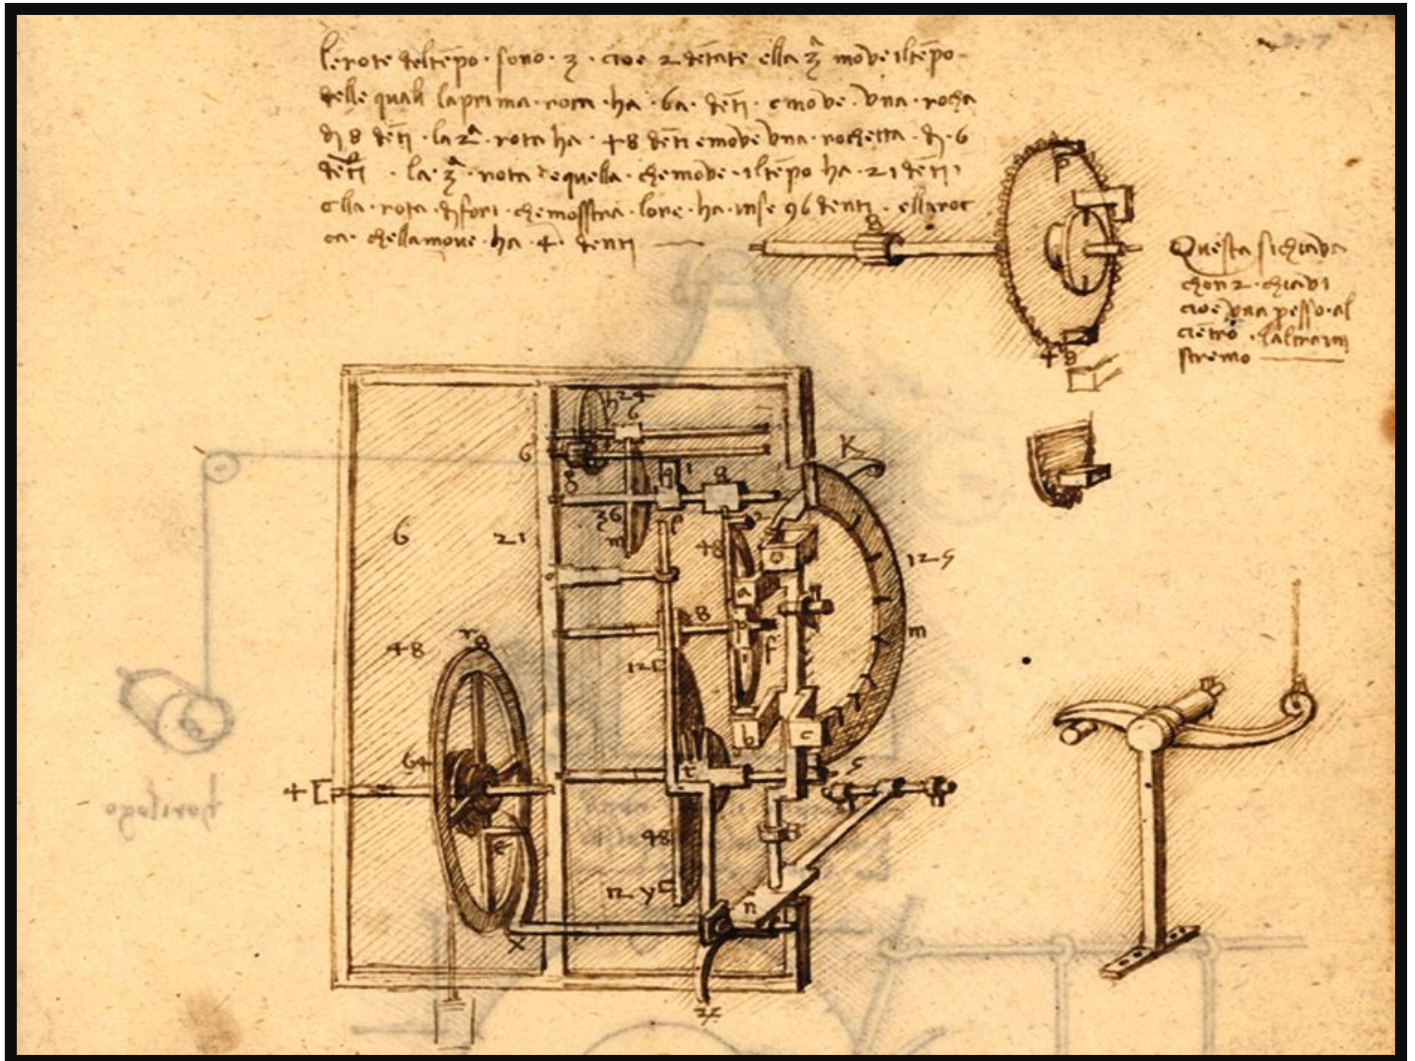 le rote deltēpo · sono · 3 · cioe 2 dētate ella 3ª move iltēpo
delle quali laprima · rota · ha · dēti · emove · vna · rocha
di 8 dēti · la 2ª · rota ha · 48 dēti emove vna · rochetta · di · 6
dēti · la · 3ª · rota · equella · chemove · iltēpo ha · 21 dēti
ella · rota · difori · chemosstra · lore · ha · inse 96 denti · ellaroc
ca · chellamove · ha · 4 · denti
8
p
48
Questa sichiava
chon 2 · chiavi
cioe vna presso · al
ciētro · laltra in
stremo
h 24
6
6
8
9
8
K
36
m
6
21
48
a
125
48
r 8
8
f
m
12
b
c
64
t
s
4
e
98
n
y
n
x
horilogo